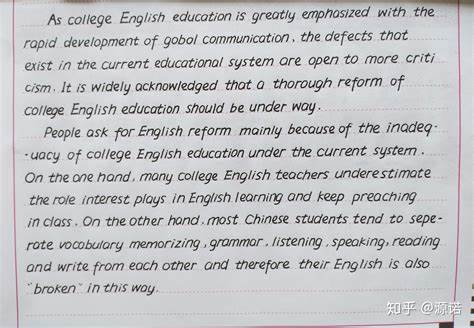 As college English education is greatly emphasized with the
rapid development of gobal communication, the defects that
exist in the current educational system are open to more criti
cism. It is widely acknowledged that a thorough reform of
college English education should be under way.
People ask for English reform mainly because of the inadeq-
-uacy of college English education under the current system.
On the one hand, many college English teachers underestimate
the role interest plays in English learning and keep preaching
in class. On the other hand, most Chinese students tend to sepe-
rate vocabulary memorizing, grammar, listening, speaking, reading
and write from each other and therefore their English is also
"broken" in this way.
知乎 @源诺